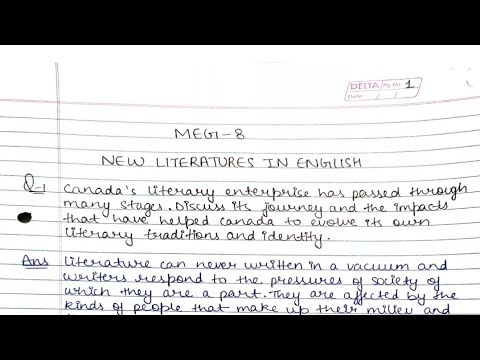 DELTA Pg No. 1
Date
MEG-8
NEW LITERATURES IN ENGLISH
Q-1 Canada's literary enterprise has passed through
many stages. Discuss its journey and the impacts
that have helped Canada to evolve its own
literary traditions and identity.
Ans Literature can never written in a vacuum and
writers respond to the pressures of society of
which they are a part. They are affected by the
kinds of people that make up their milieu and